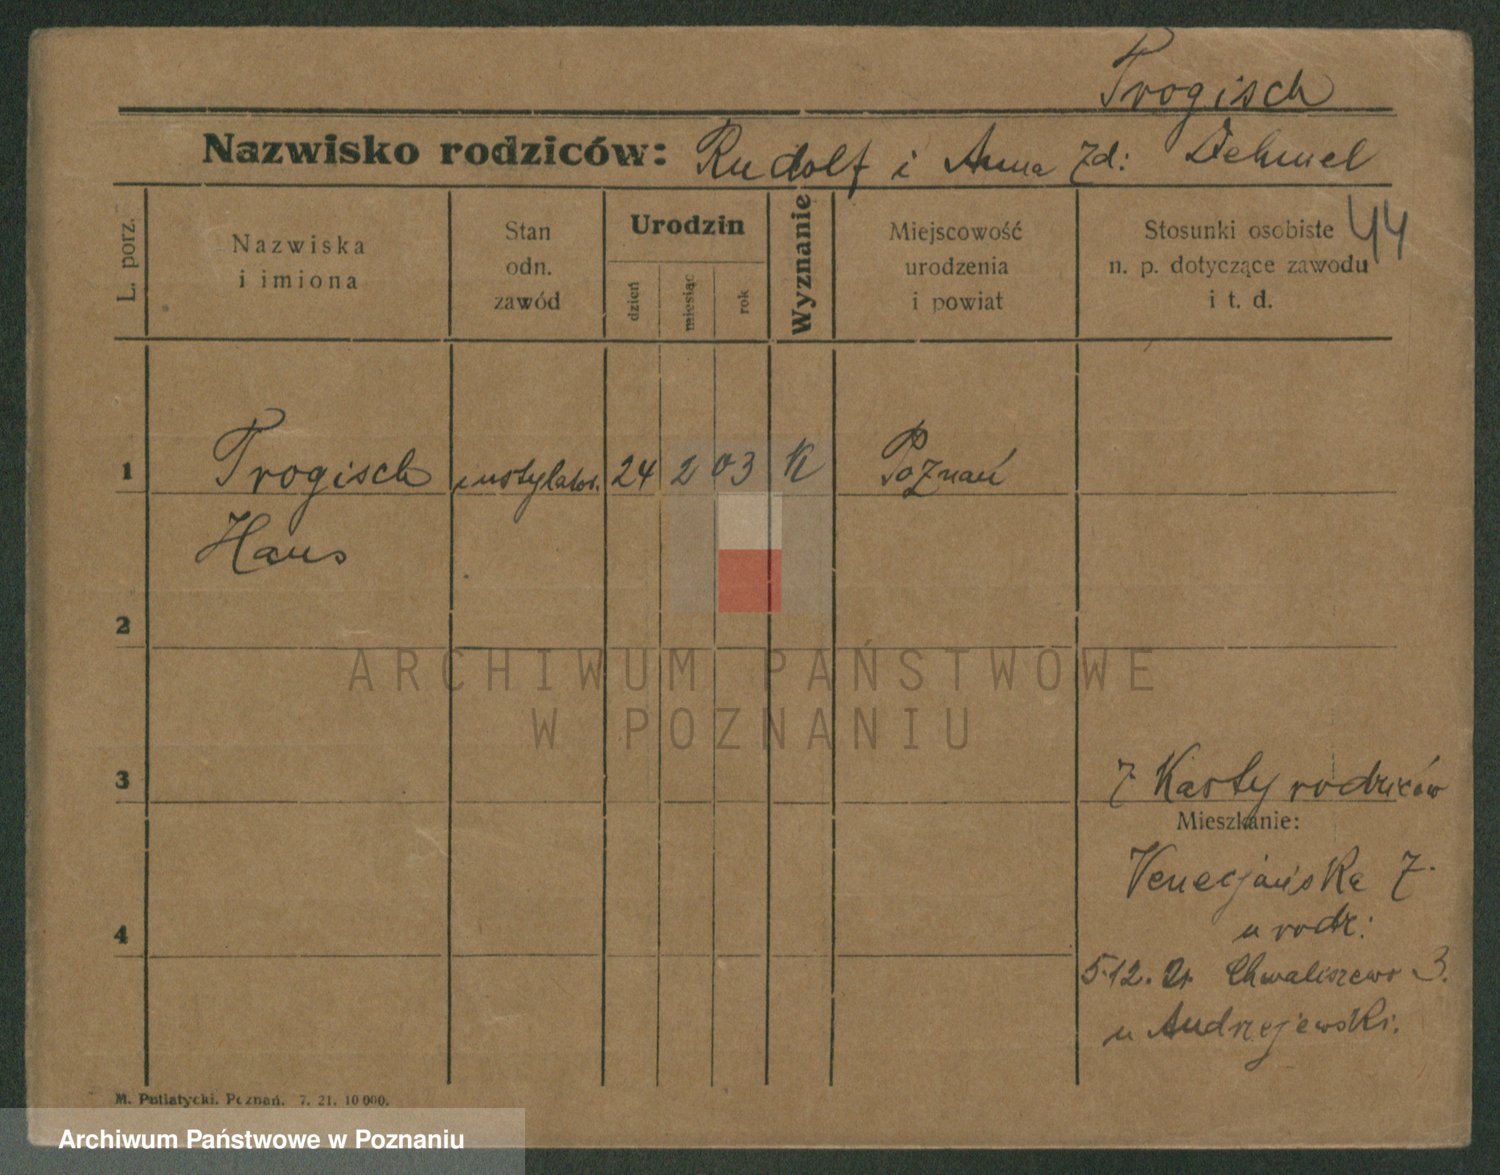 Trogisch
Nazwisko rodziców: Rudolf i Anna zd: Dehmel
44
L. porz.
Nazwiska
i imiona
Stan
odn.
zawód
Urodzin
dzień
miesiąc
rok
Wyznanie
Miejscowość
urodzenia
i powiat
Stosunki osobiste
n. p. dotyczące zawodu
i t. d.
1 Trogisch instylator. 24 2 03 K Poznań
Hans
2
3
z Karty rodziców
Mieszkanie:
Venecjańska 7.
u rodz:
4
5.12. 21. Chwaliszewo 3.
u Andrzejewski.
M. Putiatycki. Poznań. 7. 21. 10 000.
ARCHIWUM PAŃSTWOWE
W POZNANIU
Archiwum Państwowe w Poznaniu